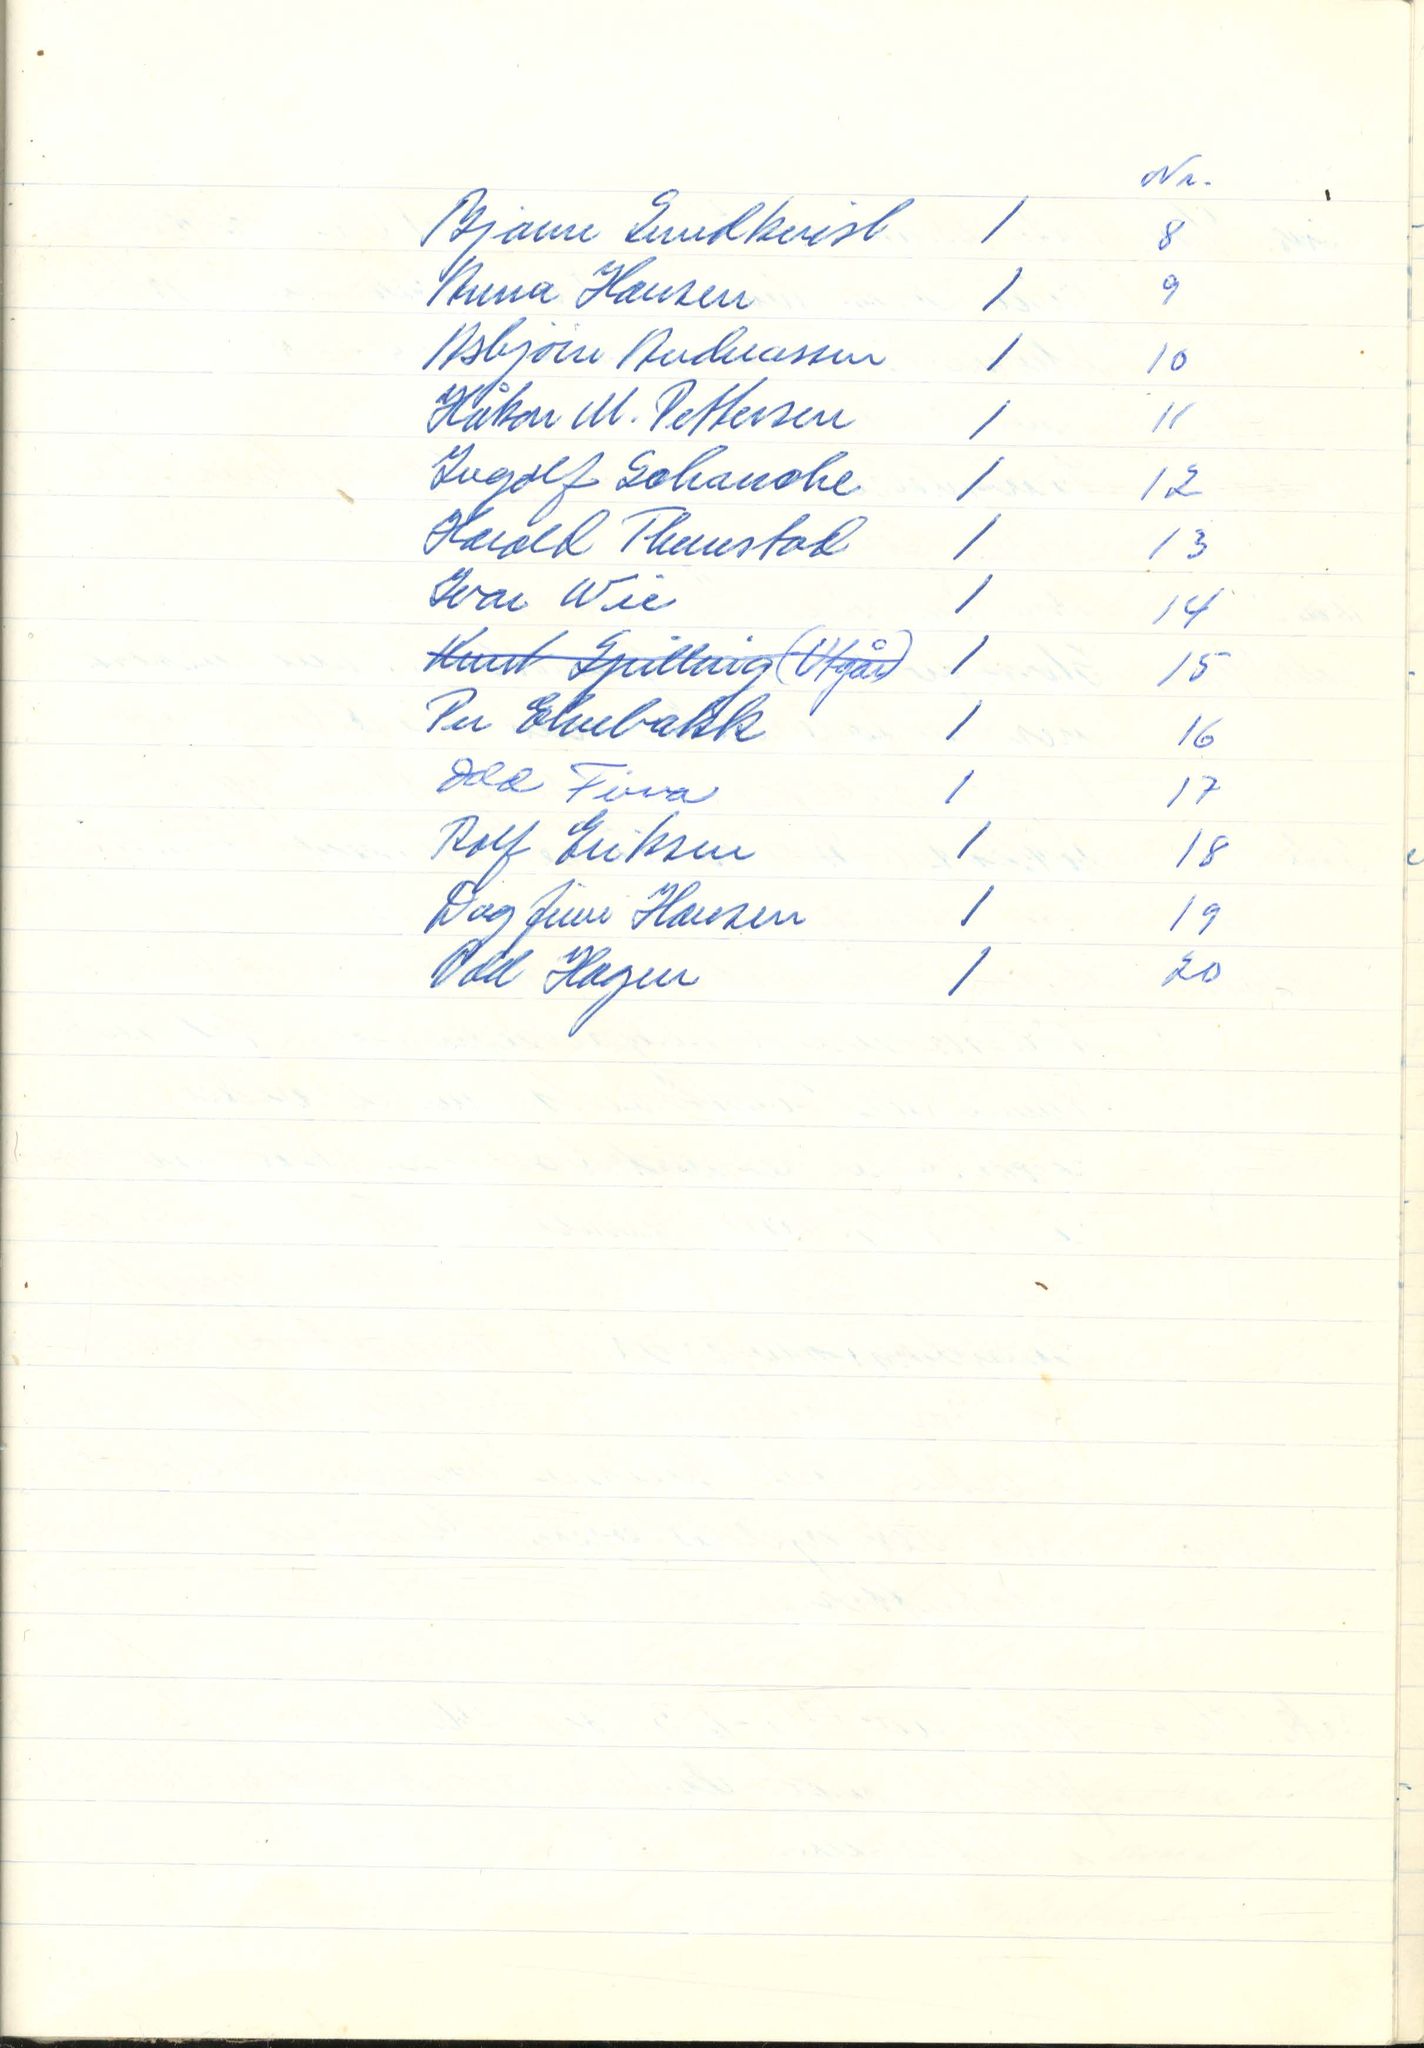 Nr.
Bjarne Lundkvist 1 8
Anna Hansen 1 9
Asbjørn Andreassen 1 10
Håkon M. Pettersen 1 11
Ingolf Schanche 1 12
Harold Thunstad 1 13
Ivar Wie 1 14
Knut Spilling (Utgår) 1 15
Per Elvebakk 1 16
Odd Fiva 1 17
Rolf Eriksen 1 18
Dagfinn Hansen 1 19
Odd Hagen 1 20